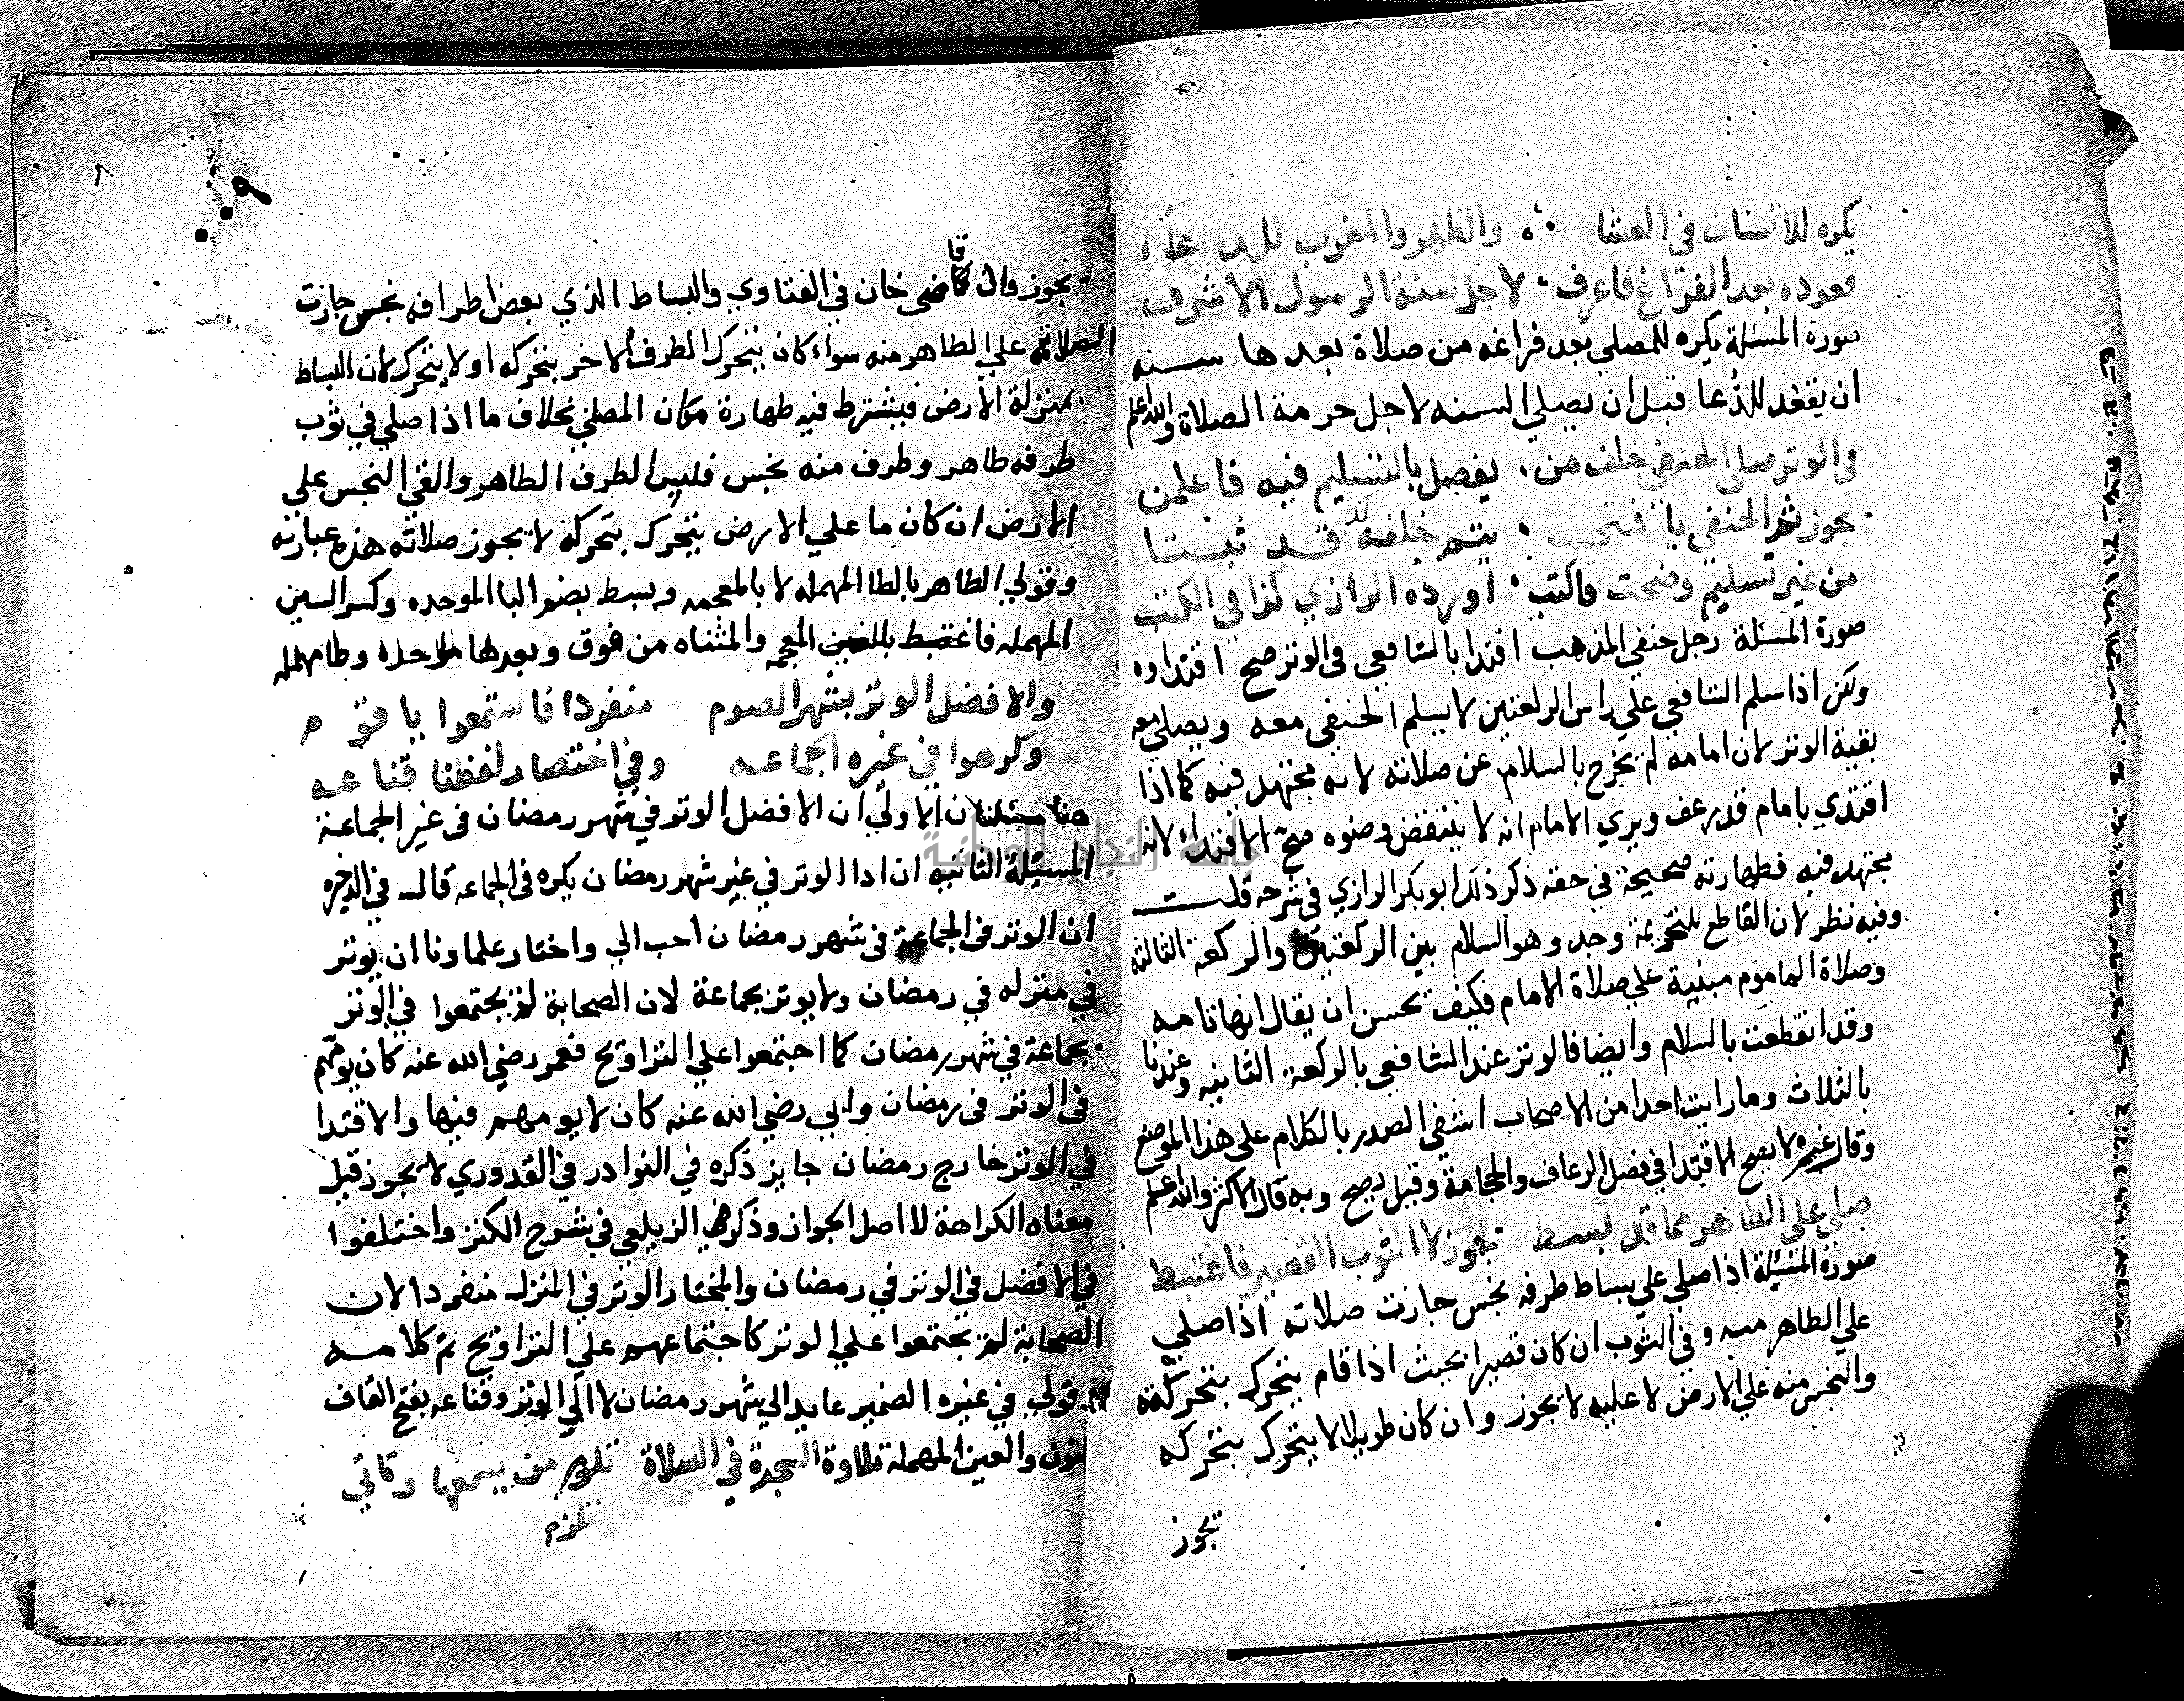 يكره للانسان في العشا والظهر والمغرب
قعوده بعد الفراغ فاعرف لاجل سنة الرسول الاشرف
صورة المسئلة يكره للمصلي بعد فراغه من صلاة بعدها سنه
ان يقعد للدعا قبل ان يصلي السنه لاجل حرمة الصلاة والله اعلم
في الوتر صلى الحنفي خلف من يفصل بالتسليم فيه فاعلمن
يجوز ثم الحنفي يا فتى يتم خلفه قد ثبتا
من غير تسليم وضحت اورده الرازي كذا في الكتب
صورة المسئلة رجل حنفي المذهب اقتدا بالشافعي في الوتر صح اقتداوه
ولكن اذا سلم الشافعي علي راس الركعتين لا يسلم الحنفي معه ويصلي معه
بقية الوتر لان امامه لم يخرج بالسلام عن صلاته لانه مجتهد فيه كما اذا
اقتدي بامام قد رعف ويري الامام انه لا ينتقض وضوه صح الاقتداء لانه
مجتهد فيه فطهارته صحيحة في حقه ذكر ذلك ابو بكر الرازي في شرحه قلت
وفيه نظر لان القاطع للتحريمة وجد وهو السلام بين الركعتين والركعة الثالثة
وصلاة الماموم مبنية علي صلاة الامام فكيف يحسن ان يقال انها تامه
وقد انقطعت بالسلام وايضا فالوتر عند الشافعي بالركعة الثانيه وعندنا
بالثلاث وما رايت احدا من الاصحاب اشفي الصدر بالكلام على هذا الموضع
وقال غيره لا يصح الاقتدا في فصل الرعاف والحجامة وقيل يصح وبه قال الاكثر والله اعلم
صلي علي الطاهر مما قد بسط يجوز لا الثوب القصير فاغتبط
صورة المسئلة اذا صلي علي بساط طرفه نجس جازت صلاته اذا صلي
علي الطاهر منه وفي الثوب ان كان قصيرا بحيث اذا قام يتحرك بتحركه
والنجس منه علي الارض لا عليه لا يجوز وان كان طويلا لا يتحرك بتحركه
تجوز
٨
يجوز وقال قاضي خان في الفتاوي والبساط الذي بعض اطرافه نجس جازت
الصلاة علي الطاهر منه سواء كان يتحرك الطرف الاخر بتحركه او لا يتحرك لان البساط
بمنزلة الارض فيشترط فيه طهارة مكان المصلي بخلاف ما اذا صلي في ثوب
طرفه طاهر وطرف منه نجس فلبس الطرف الطاهر والقي النجس علي
الارض ان كان ما علي الارض يتحرك بتحركه لا يجوز صلاته هذه عبارته
وقولي الطاهر بالطا المهمله لا بالمعجمه وبسط بضم البا الموحده وكسر السين
المهمله فاغتبط بالغين المعجمه والمثناه من فوق وبعدها موحده وطا مهمله
والافضل الوتر بشهر الصوم منفردا فاستمعوا يا قوم
وكرهوا في غيره الجماعه وفي اختصار لفظنا قناعه
هنا مسئلتان الاولي ان الافضل الوتر في شهر رمضان في غير الجماعة
المسئلة الثانيه ان ادا الوتر في غير شهر رمضان يكره في الجماعه قال في الذخيره
ان الوتر في الجماعة في شهر رمضان احب الي واختار علماونا ان يوتر
في منزله في رمضان ولا يوتر بجماعة لان الصحابة لم يجتمعوا في الوتر
بجماعة في شهر رمضان كما اجتمعوا علي التراويح فعمر رضي الله عنه كان يومهم
في الوتر في رمضان وابي رضي الله عنه كان لا يومهم فيها والاقتدا
في الوتر خارج رمضان جايز ذكره في النوادر في القدوري لا يجوز قيل
معناه الكراهة لا اصل الجواز وذكر الزيلعي في شرح الكنز واختلفوا
في الافضل في الوتر في رمضان والمختار الوتر في المنزل منفردا لان
الصحابة لم يجتمعوا علي الوتر كاجتماعهم علي التراويح تم كلامه
قولي في غيره الضمير عايد الي شهر رمضان لا الي الوتر وقناعه بفتح القاف
لنون والعين المهملة تلاوة السجدة في الصلاة تلزم من يسمعها
تلزم